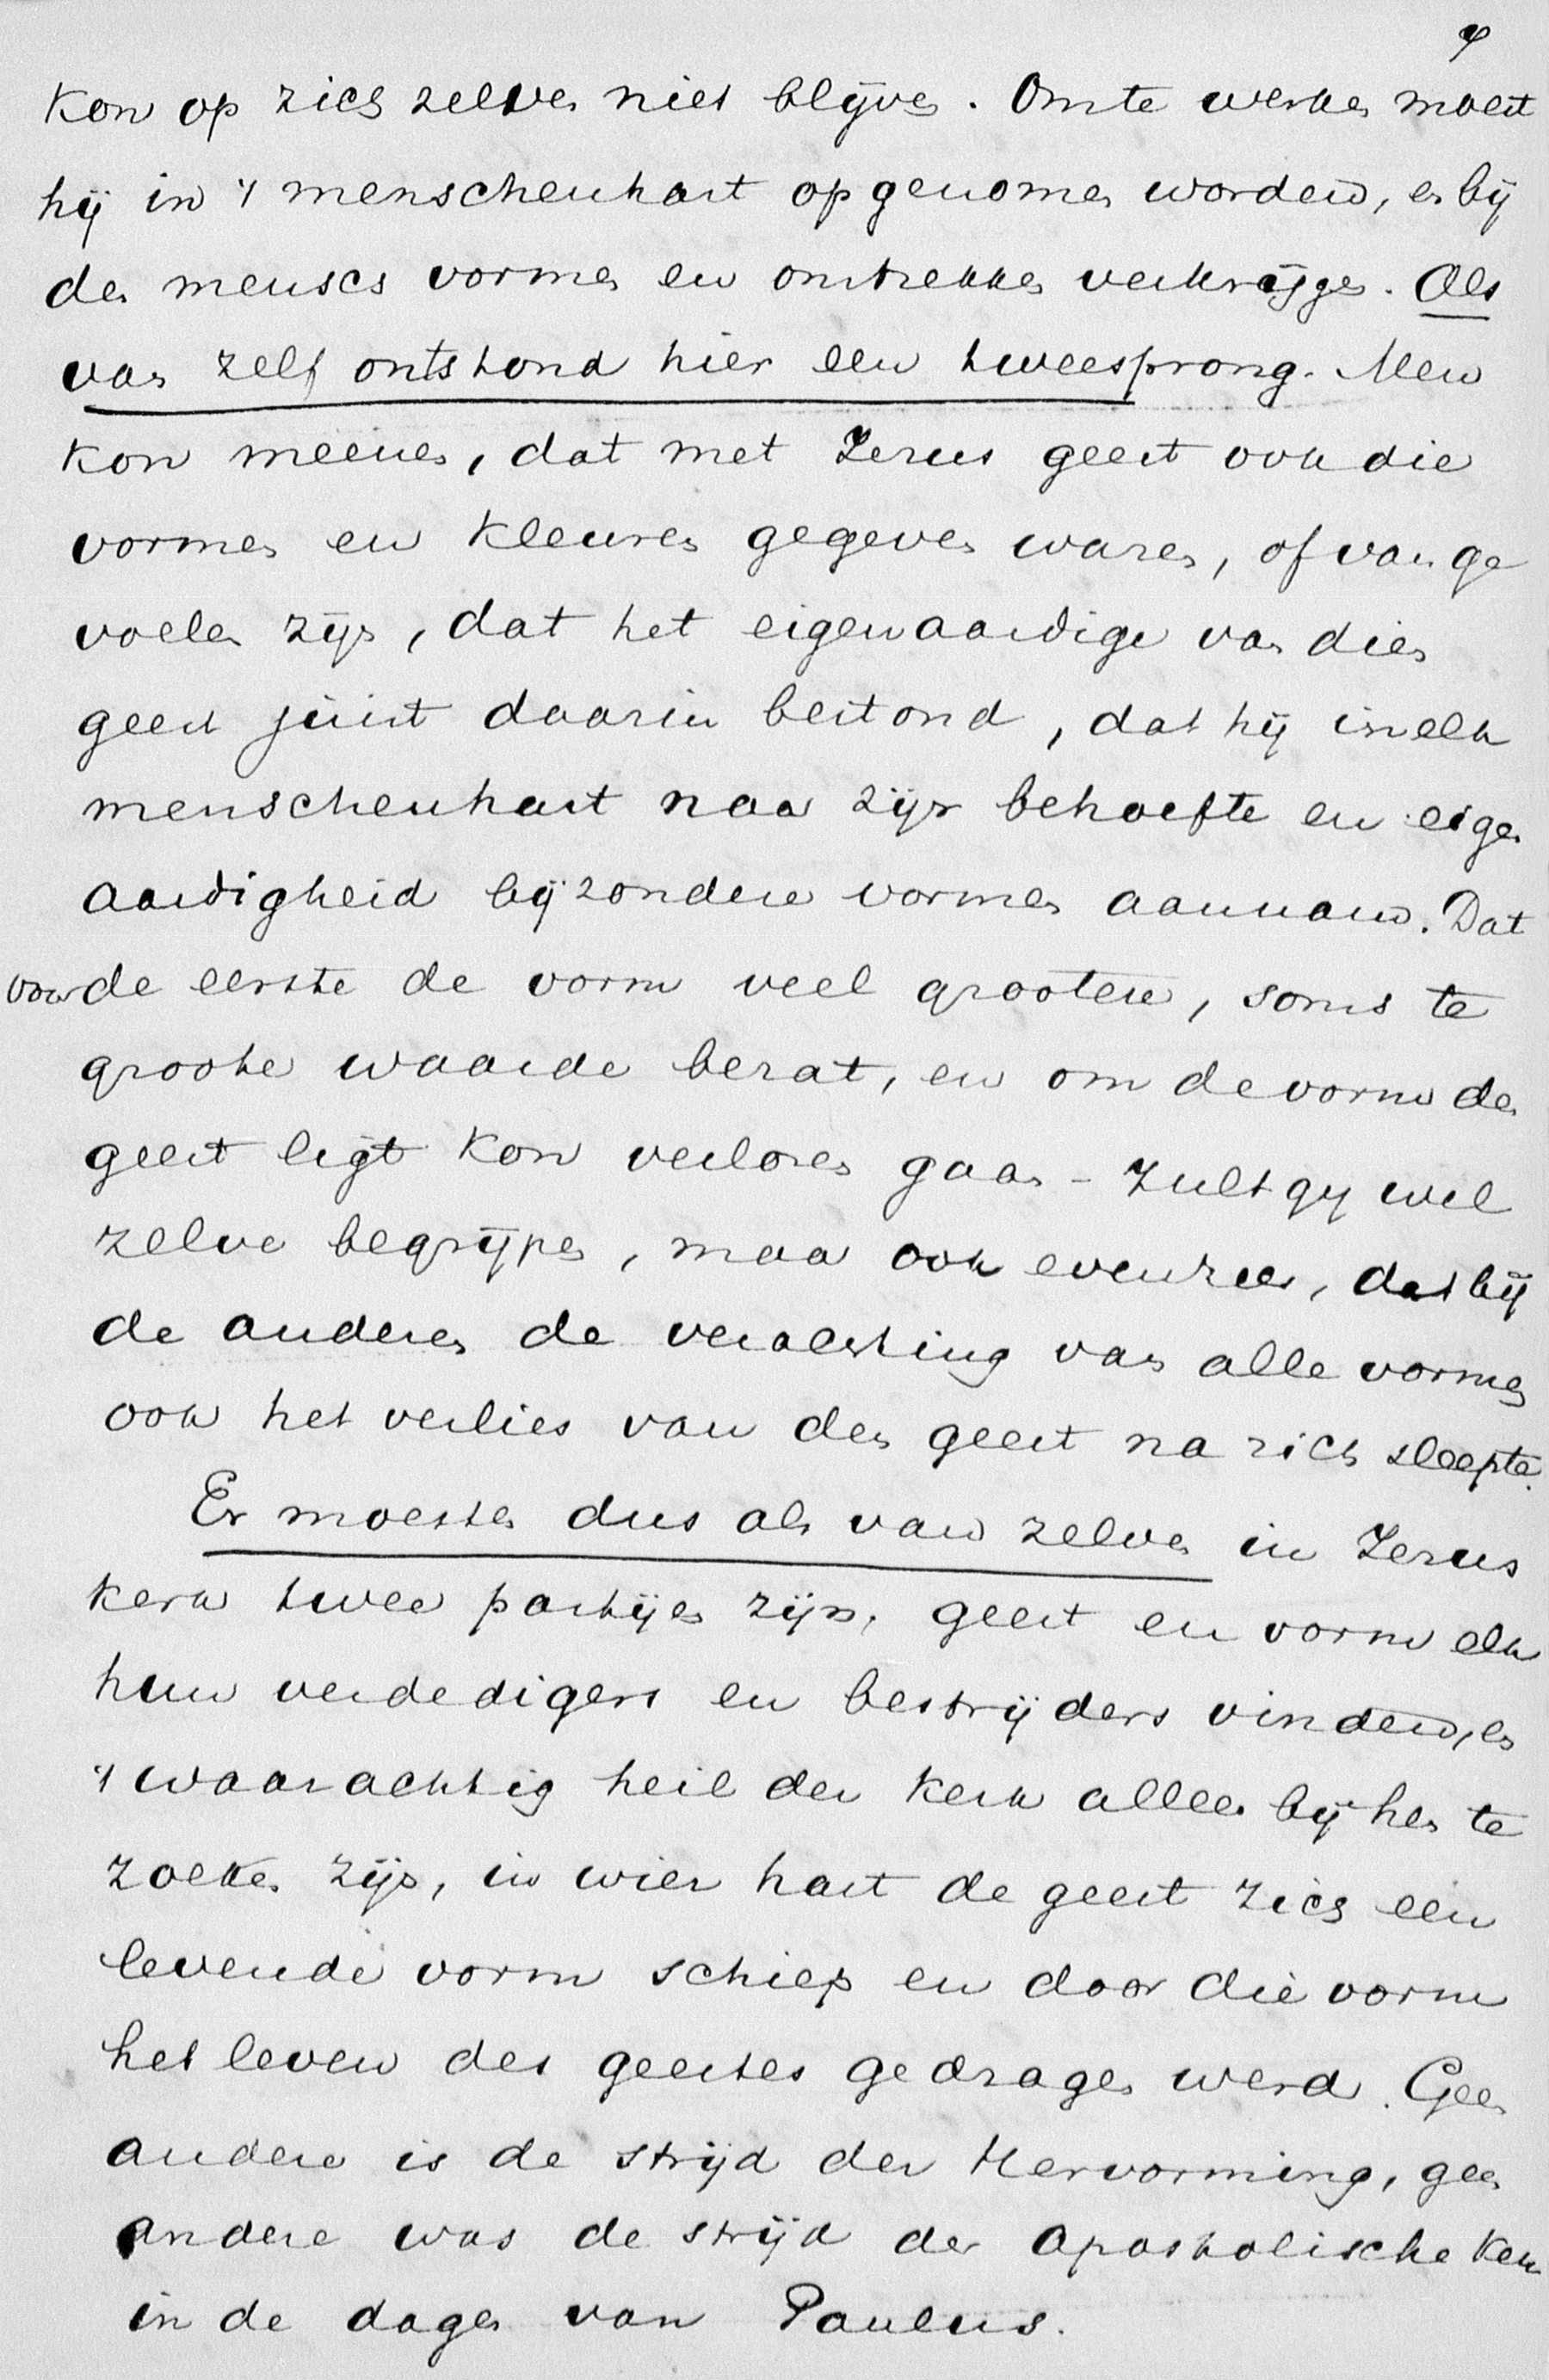 kon op zich zelven niet blijven. Om te werken moest
hij in 't menschenhart opgenomen worden, en bij
den mensch vormen en omtrekken verkrijgen. Als
van zelf ontstond hier een tweesprong. Men
kon meenen, dat met Jezus geest ook die
vormen en kleuren gegeven waren, of van ge
voelen zijn, dat het eigenaardige van dien
geest juist daarin bestond, dat hij in elk
menschenhart naar zijn behoefte en eigen
aardigheid bijzondere vormen aannam. Dat
voor de eerste de vorm veel grootere, soms te
groote waarde bezat, en om de vorm de
geest ligt kon verloren gaan – zult gij wel
zelve begrijpen, maar ook evenzeer, dat bij
de anderen de verachting van alle vormen
ook het verlies van den geest na zich sleepte.
Er moesten dus als van zelven in Jezus
kerk twee partijen zijn, geest en vorm elk
hun verdedigers en bestrijders vinden, en
't waarachtig heil der kerk alleen bij hen te
zoeken zijn, in wier hart de geest zich een
levende vorm schiep en door die vorm
het leven des geestes gedragen werd. Geen
andere is de strijd der Hervorming, geen
andere was de strijd der Apostolische kerk
in de dagen van Paulus.